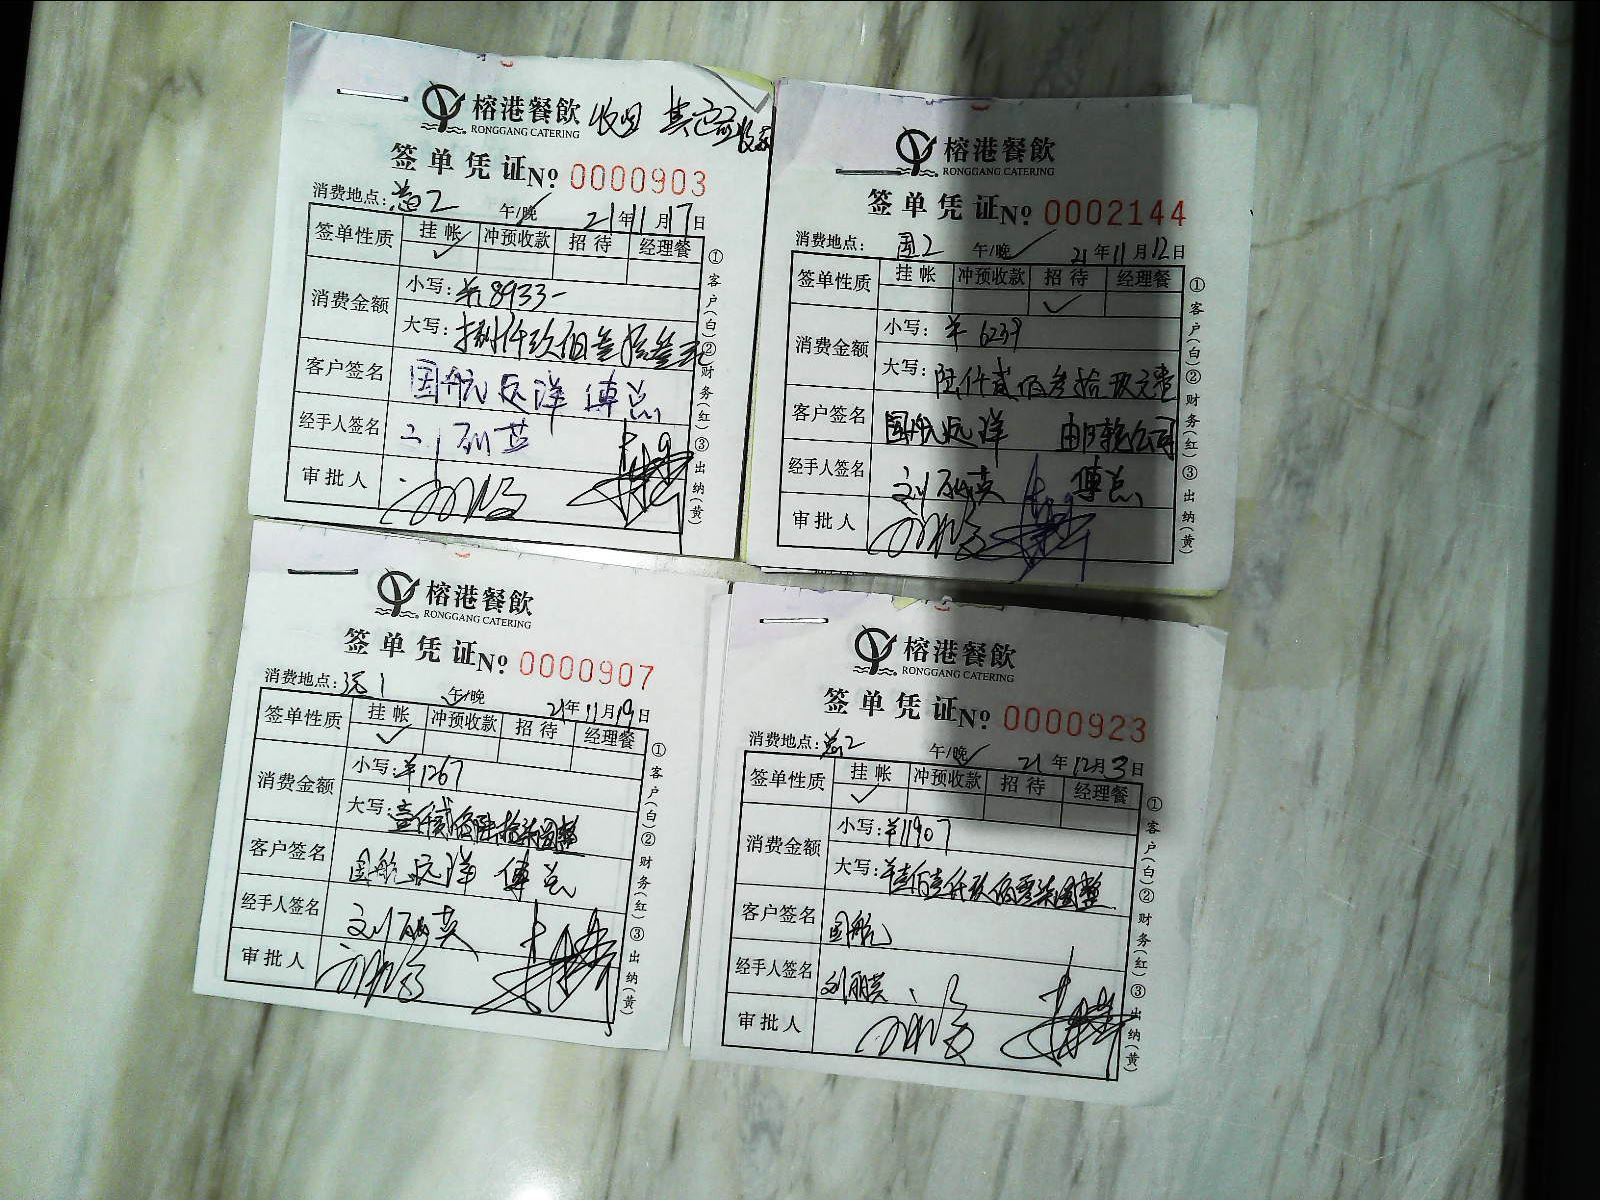 榕港餐飲
RONGGANG CATERING
签单凭证 No 0000903
消费地点: 总2 午/晚 21年11月17日
签单性质 挂帐 冲预收款 招待 经理餐
消费金额 小写: ¥8933-
大写: 捌仟玖佰叁拾叁元
客户签名 国航远洋 傅总
经手人签名 刘丽英
审批人
①客户(白)②财务(红)③出纳(黄)
榕港餐飲
RONGGANG CATERING
签单凭证 No 0002144
消费地点: 国2 午/晚 21年11月12日
签单性质 挂帐 冲预收款 招待 经理餐
消费金额 小写: ¥6239
大写: 陆仟贰佰叁拾玖元整
客户签名 国航远洋 邮轮公司
傅总
经手人签名 刘丽英
审批人
①客户(白)②财务(红)③出纳(黄)
榕港餐飲
RONGGANG CATERING
签单凭证 No 0000907
消费地点: 远1 午/晚 21年11月19日
签单性质 挂帐 冲预收款 招待 经理餐
消费金额 小写: ¥1267
大写: 壹仟贰佰陆拾柒圆整
客户签名 国航远洋 傅总
经手人签名 刘丽英
审批人
①客户(白)②财务(红)③出纳(黄)
榕港餐飲
RONGGANG CATERING
签单凭证 No 0000923
消费地点: 总2 午/晚 21年12月3日
签单性质 挂帐 冲预收款 招待 经理餐
消费金额 小写: ¥11907
大写: 壹仟玖佰零柒圆整
客户签名 国航
经手人签名 刘丽英
审批人
①客户(白)②财务(红)③出纳(黄)